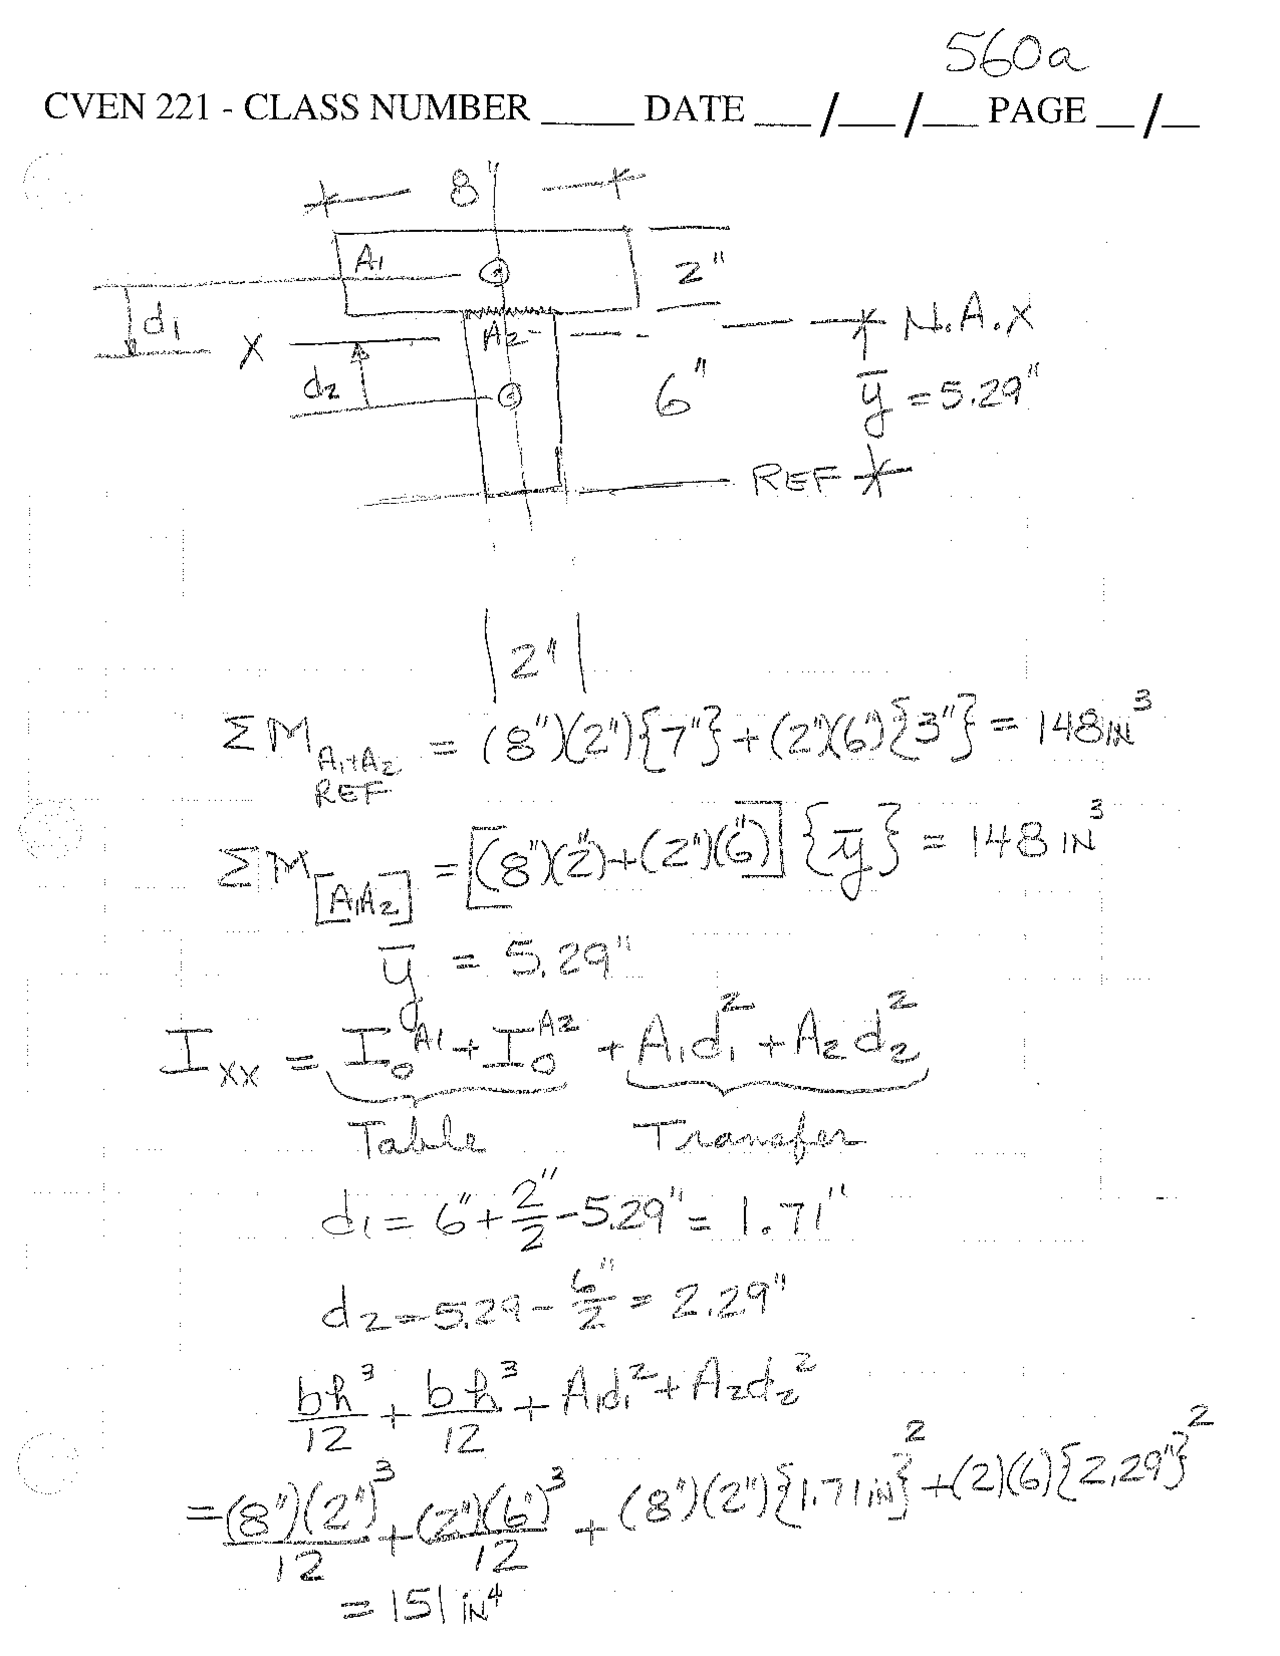 560a
CVEN 221 - CLASS NUMBER ____ DATE __/__/__ PAGE _/_
8"
A1
2"
d1
X
A2
N.A.X
d2
6"
y̅ = 5.29"
REF
2"
ΣM A1+A2 REF = (8")(2"){7"} + (2")(6"){3"} = 148 IN³
ΣM [A1A2] = [(8")(2") + (2")(6")] {y̅} = 148 IN³
y̅ = 5.29"
I xx = I₀^A1 + I₀^A2 + A₁d₁² + A₂d₂²
Table Transfer
d1 = 6" + 2"/2 - 5.29" = 1.71"
d2 = 5.29 - 6"/2 = 2.29"
bh³/12 + bh³/12 + A₁d₁² + A₂d₂²
= (8")(2")³/12 + (2")(6")³/12 + (8")(2"){1.71 IN}² + (2)(6){2.29"}²
= 151 IN⁴